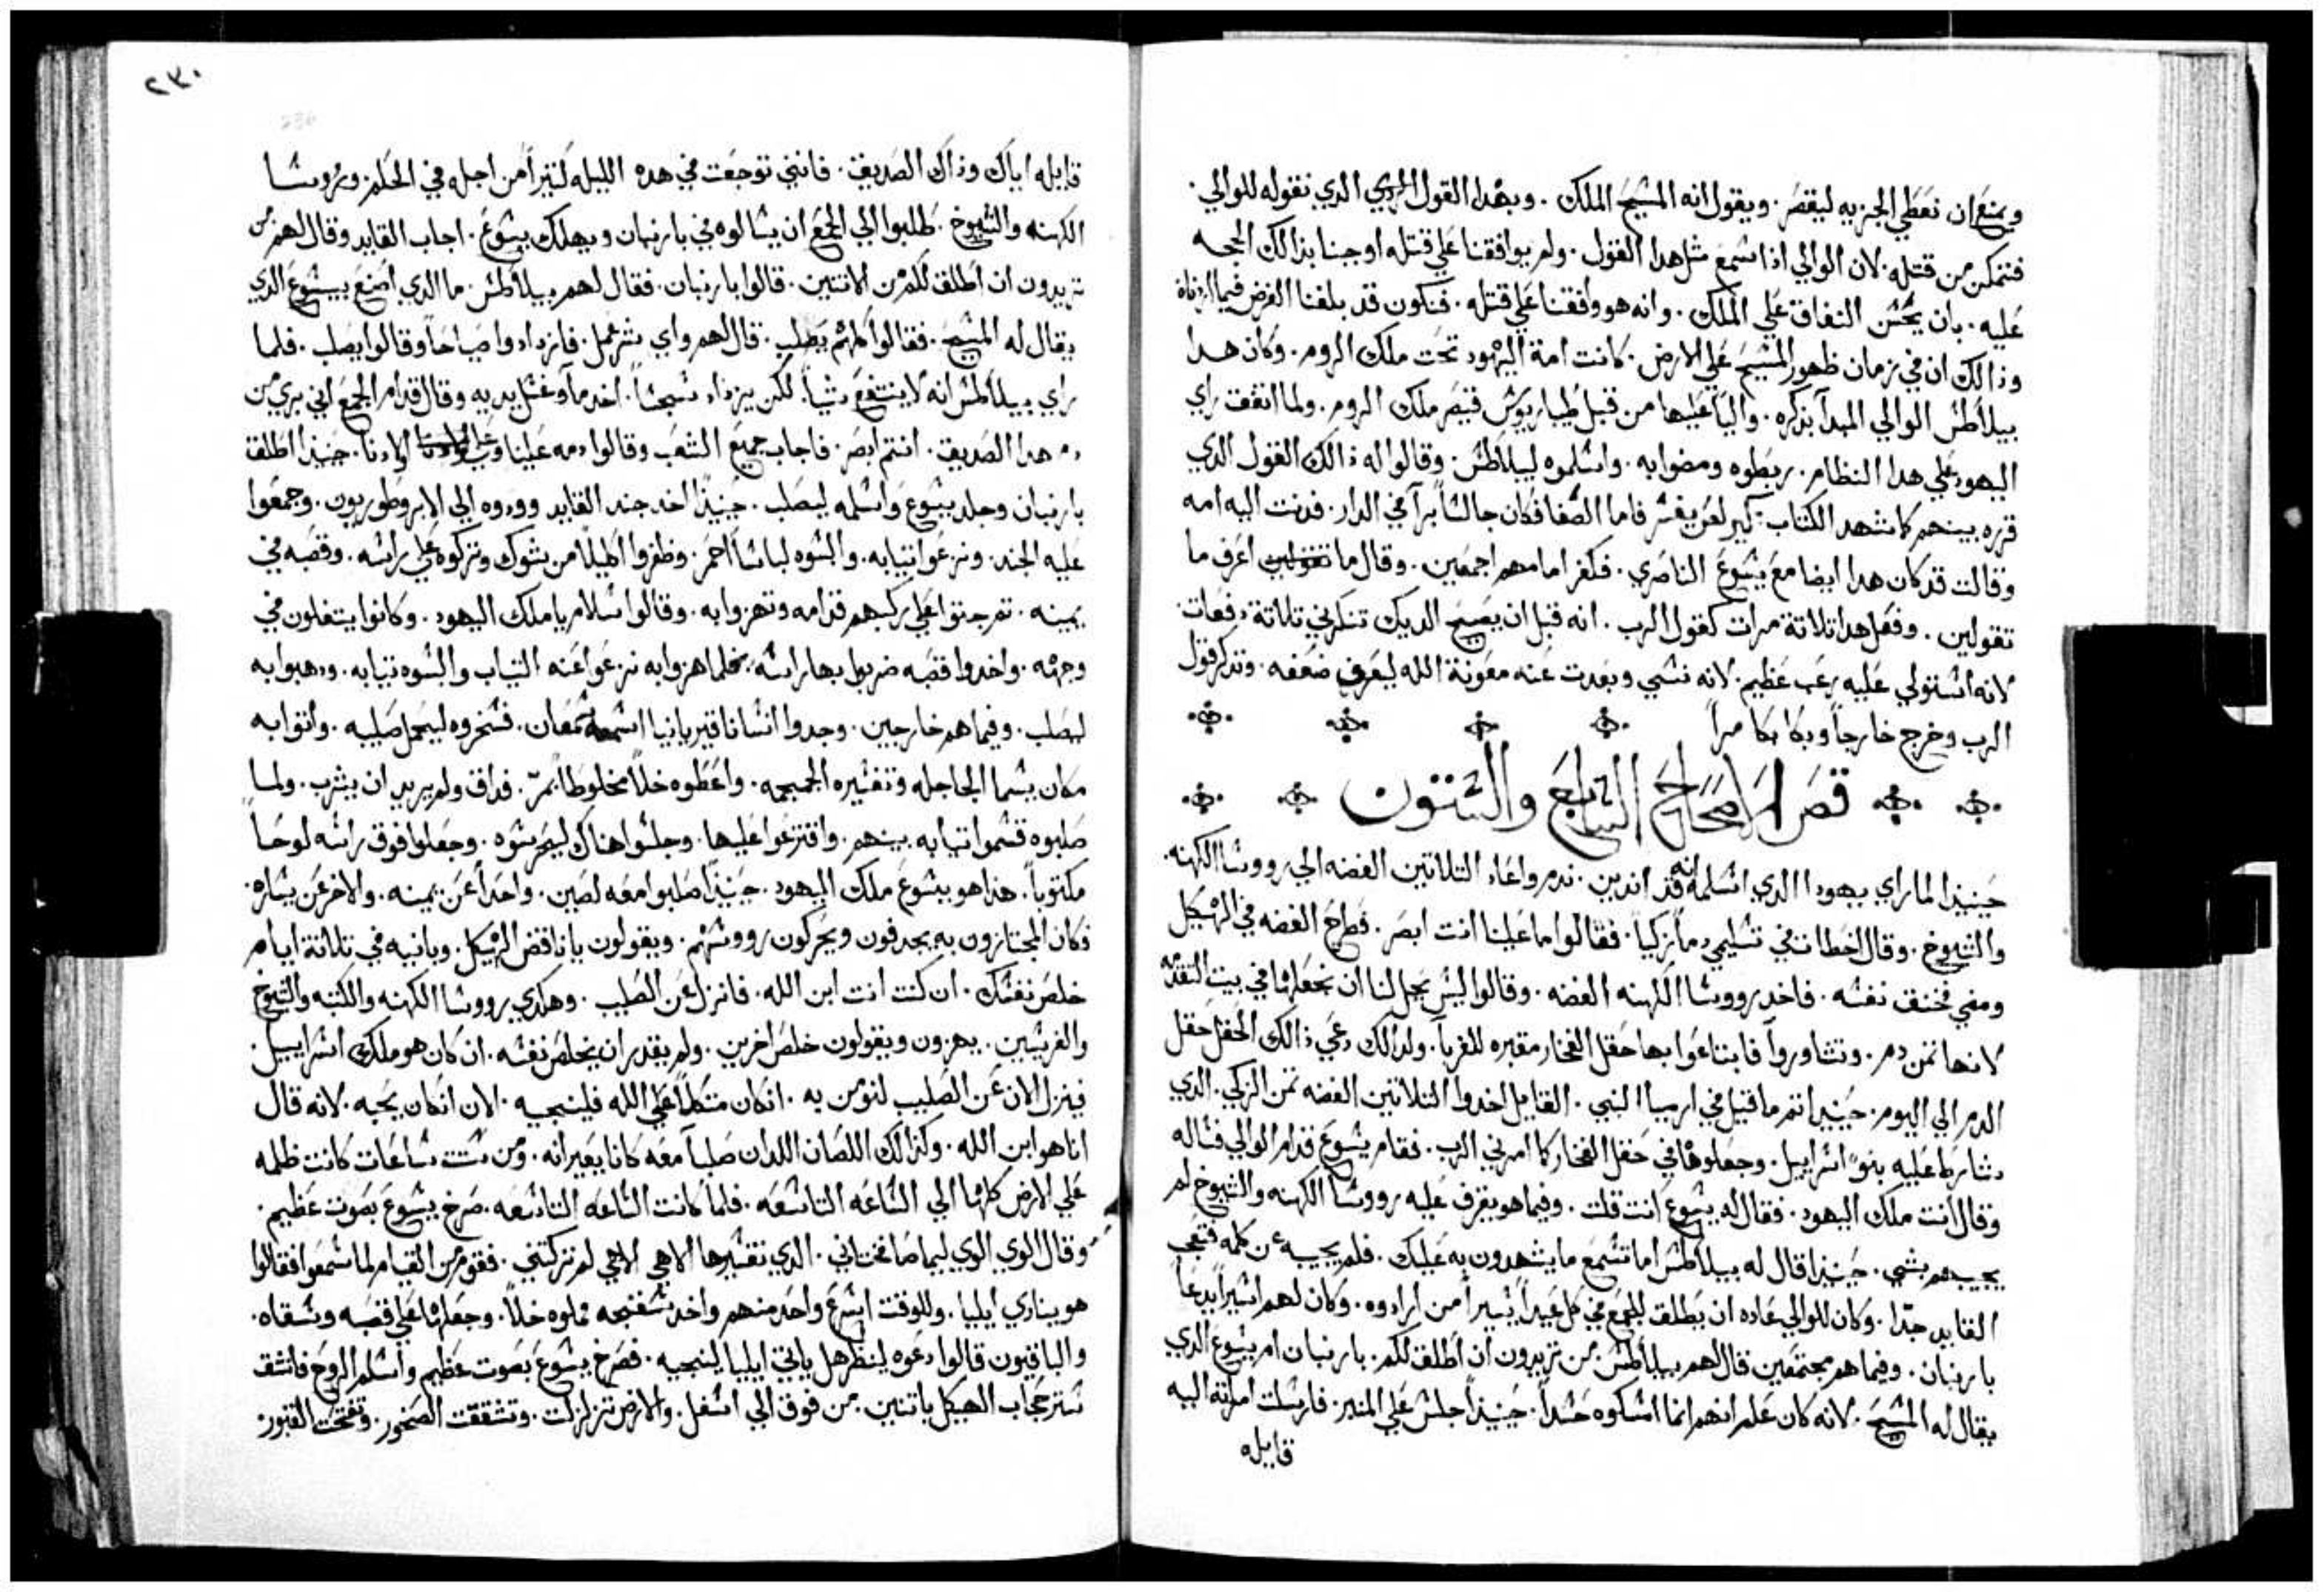 ويمنع ان نعطي الجزيه ليقصر. ويقول انه المسيح الملك. وبهدا القول الردي الدي نقوله للوالي.
فنتمكن من قتله. لان الوالي اذا سمع مثل هدا القول. ولم يوافقنا علي قتله اوجبنا بذالك الحجه
عليه. بان يحسن النفاق علي الملك. وانه هو وافقنا علي قتله. فنكون قد بلغنا الغرض فيما اردناه
وذالك ان في زمان ظهور المسيح علي الارض. كانت امة اليهود تحت ملك الروم. وكان هدا
بيلاطس الوالي المبدآ بذكره. واليآ عليها من قبل طيباريوس قيصر ملك الروم. ولما اتفقت راي
اليهود علي هدا النظام. ربطوه ومضوا به. واسلموه لبيلاطس. وقالوا له ذالك القول الدي
قرره بينهم كما شهد الكتاب. فاما الصفا فكان جالسا برآ في الدار. فدنت اليه امه
وقالت قد كان هدا ايضا مع يسوع الناصري. فكفر امامهم اجمعين. وقال ما اعرف ما
تقولين. وفعل هدا تلاتة مرات كقول الرب. انه قبل ان يصيح الديك تنكرني تلاتة دفعات
لانه استولي عليه رعب عظيم. لانه نسي وبعدت عنه معونة الله ليعرف ضعفه. وتدكر قول
الرب وخرج خارجاً وبكا بكا مراً
قصر الاصحاح السابع والستون
حينيذا لما راي يهودا الدي اسلمه انه قد ادين. ندم واعاد التلاتين الفضه الي رووسا الكهنه.
والشيوخ. وقال اخطات في تسليمي دماً زكياً. فقالوا ما علينا انت ابصر. فطرح الفضه في الهيكل
ومضي فخنق نفسه. فاخد رووسا الكهنه الفضه. وقالوا ليس يحل لنا ان نجعلها في بيت التقدمه
لانها تمن دم. وتشاوروآ فابتاعوا بها حقل الفخار مقبره للغربآ. ولدالك دعي ذالك الحقل حقل
الدم الي اليوم. حينيدا تم ما قيل في ارميا النبي. القايل اخدوا التلاتين الفضه تمن الزكي. الدي
شارطا عليه بنوا اسراييل. وجعلوها في حقل الفخار كما امرني الرب. فقام يسوع قدام الوالي فساله
وقال انت ملك اليهود. فقال له يسوع انت قلت. وفيما هو يقرف عليه رووسا الكهنه والشيوخ لم
يجيبهم بشي. حينيذا قال له بيلاطس اما تسمع ما يشهدون به عليك. فلم يجيبه عن كلمه فتعجب
القايد جدّا. وكان للوالي عاده ان يطلق للجمع في كل عيد اسيراً من ارادوه. وكان لهم اسيراً يدعا
بارنبان. وفيما هم مجتمعين قال لهم بيلاطس من تريدون ان اطلق لكم. بارنبان ام يسوع الدي
يقال له المسيح. لانه كان علم انهم انما اسلموه حسداً. حينيذا جلس علي المنبر. فارسلت امراته اليه
قايله
٢٣٠
قايله اياك وذاك الصديق. فانني توجعت في هده الليله كتيراً من اجله في الحلم. ورووسا
الكهنه والشيوخ. طلبوا الي الجمع ان يسالوه في بارنبان ويهلك يسوع. اجاب القايد وقال لهم من
تريدون ان اطلق لكم من الاتنين. قالوا بارنبان. فقال لهم بيلاطس. ما الدي اصنع بيسوع الدي
يقال له المسيح. فقالوا كلهم يصلب. قال لهم واي شر عمل. فازدادوا صياحاً وقالوا يصلب. فلما
راي بيلاطس انه لا ينتفع شياً. لكن يزداد سجساً. اخد مآ وغسل يديه وقال قدام الجمع اني بري من
دم هدا الصديق. انتم ابصر. فاجاب جميع الشعب وقالوا دمه علينا وعلي اولادنا. حينيذا اطلق
بارنبان وجلد يسوع واسلمه ليصلب. حينيذا اخد جند القايد وودوه الي الابروطوريون. وجمعوا
عليه الجند. ونزعوا تيابه. والبسوه لباساً احمر. وظفروا اكليلاً من شوك وتركوه علي راسه. وقصبه في
يمينه. تم جتوا علي ركبهم قدامه وتهزوا به. وقالوا سلام يا ملك اليهود. وكانوا يتفلون في
وجهه. واخدوا قصبه ضربوا بها راسه. فلما هزوا به نزعوا عنه التياب والبسوه تيابه. ودهبوا به
ليصلب. وفيما هم خارجين. وجدوا انسانا قيريانيا اسمه سمعان. فسخروه ليحمل صليبه. واتوا به
مكان يسما الجاجله وتفسيره الجمجمه. واعطوه خلاً مخلوطاً بمرّ. فداق ولم يريد ان يشرب. ولما
صلبوه قسموا تيابه بينهم. واقترعوا عليها. وجلسوا هناك ليحرسوه. وجعلوا فوق راسه لوحاً
مكتوباً. هذا هو يسوع ملك اليهود. حينيذا صلبوا معه لصين. واحداً عن يمينه. والاخر عن يساره.
فكان المجتازون به يجدفون ويحركون رووسهم. ويقولون يا ناقض الهيكل. وبانيه في تلاتة ايام
خلص نفسك. ان كنت انت ابن الله. فانزل عن الصليب. وهكدي رووسا الكهنه والكتبه والشيوخ
والفريسيين. يهزون ويقولون خلص اخرين. ولم يقدر ان يخلص نفسه. ان كان هو ملك اسراييل.
فينزل الان عن الصليب لنومن به. ان كان متكلاً علي الله فلينجيه. الان ان كان يحبه. لانه قال
انا هو ابن الله. وكذالك اللصان اللدان صلباً معه كانا يعيرانه. ومن ست ساعات كانت ظلمه
علي الارض كلها الي الساعه التاسعه. فلما كانت الساعه التاسعه. صرخ يسوع بصوت عظيم.
وقال الوي الوي ليما صافختاني. الدي تفسيرها الاهي الاهي لم تركتني. فقوم من القيام لما سمعوا فقالوا
هو ينادي ايليا. وللوقت اسرع واحد منهم واخد سفنجه مملوه خلاً. وجعلها علي قصبه وسقاه.
والباقيون قالوا دعوه لينظر هل ياتي ايليا لينجيه. فصرخ يسوع بصوت عظيم واسلم الروح فانشق
ستر حجاب الهيكل باتنين. من فوق الي اسفل. والارض تزلزلت. وتشققت الصخور. وتفتحت القبور.